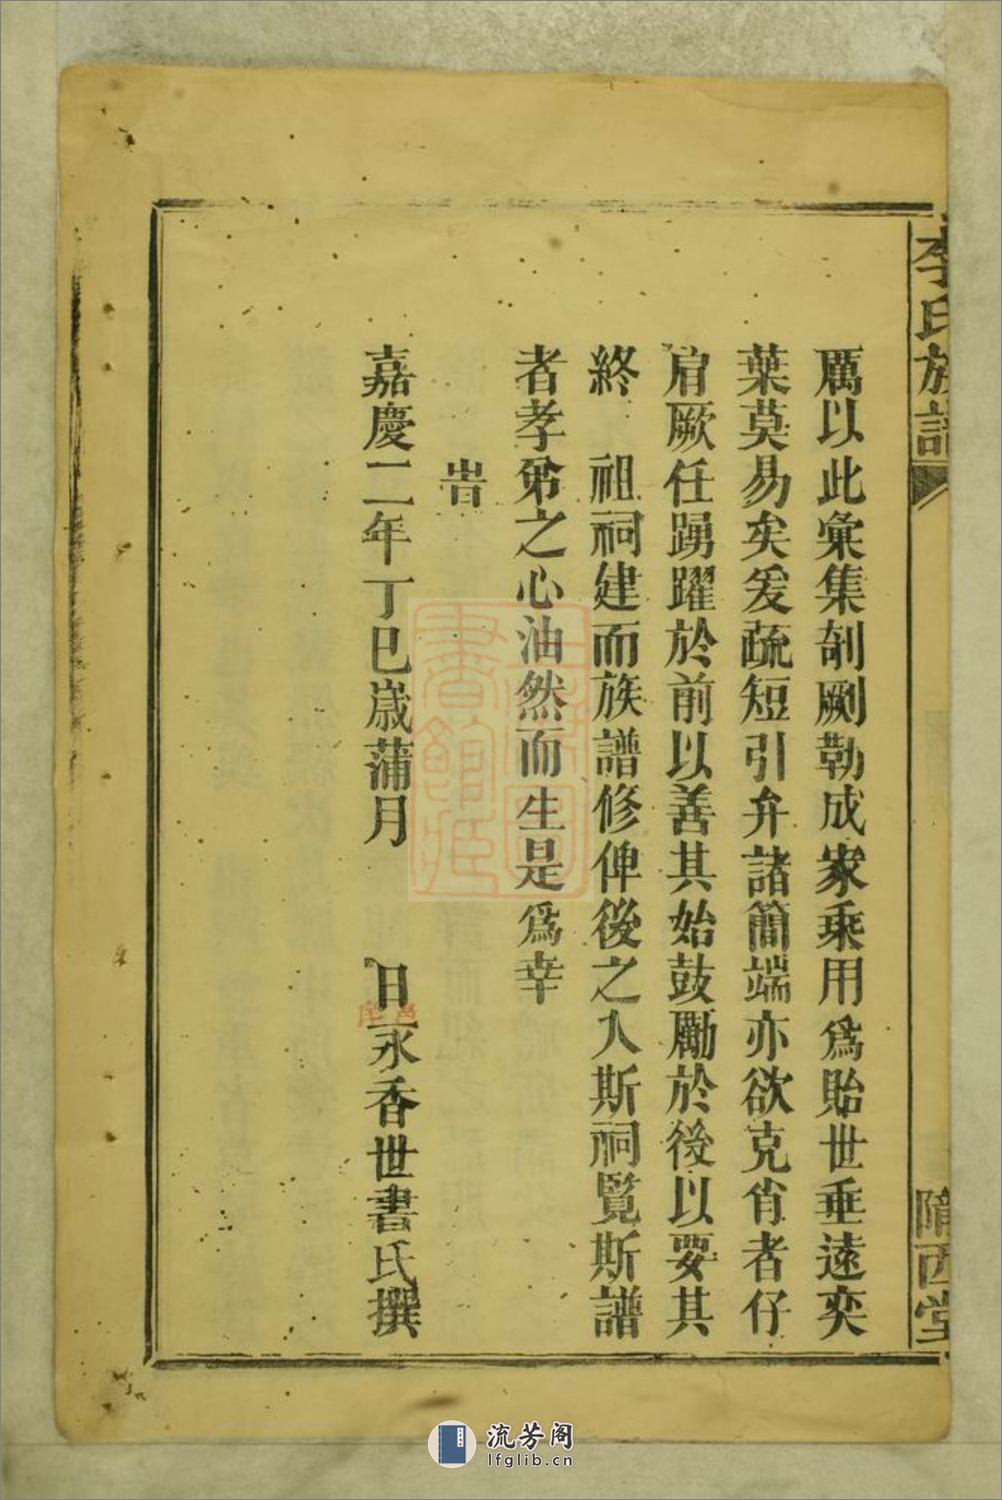 李氏族譜
隴西堂
厲以此彙集剞劂勒成家乘用爲貽世垂遠奕
葉莫易矣爰疏短引弁諸簡端亦欲克肖者仔
肩厥任踴躍於前以善其始鼓勵於後以要其
終 祖祠建而族譜修俾後之入斯祠覽斯譜
者孝弟之心油然而生是爲幸
旹
嘉慶二年丁巳歲蒲月 日永香世書氏撰
書館藏
流芳阁
lfglib.cn